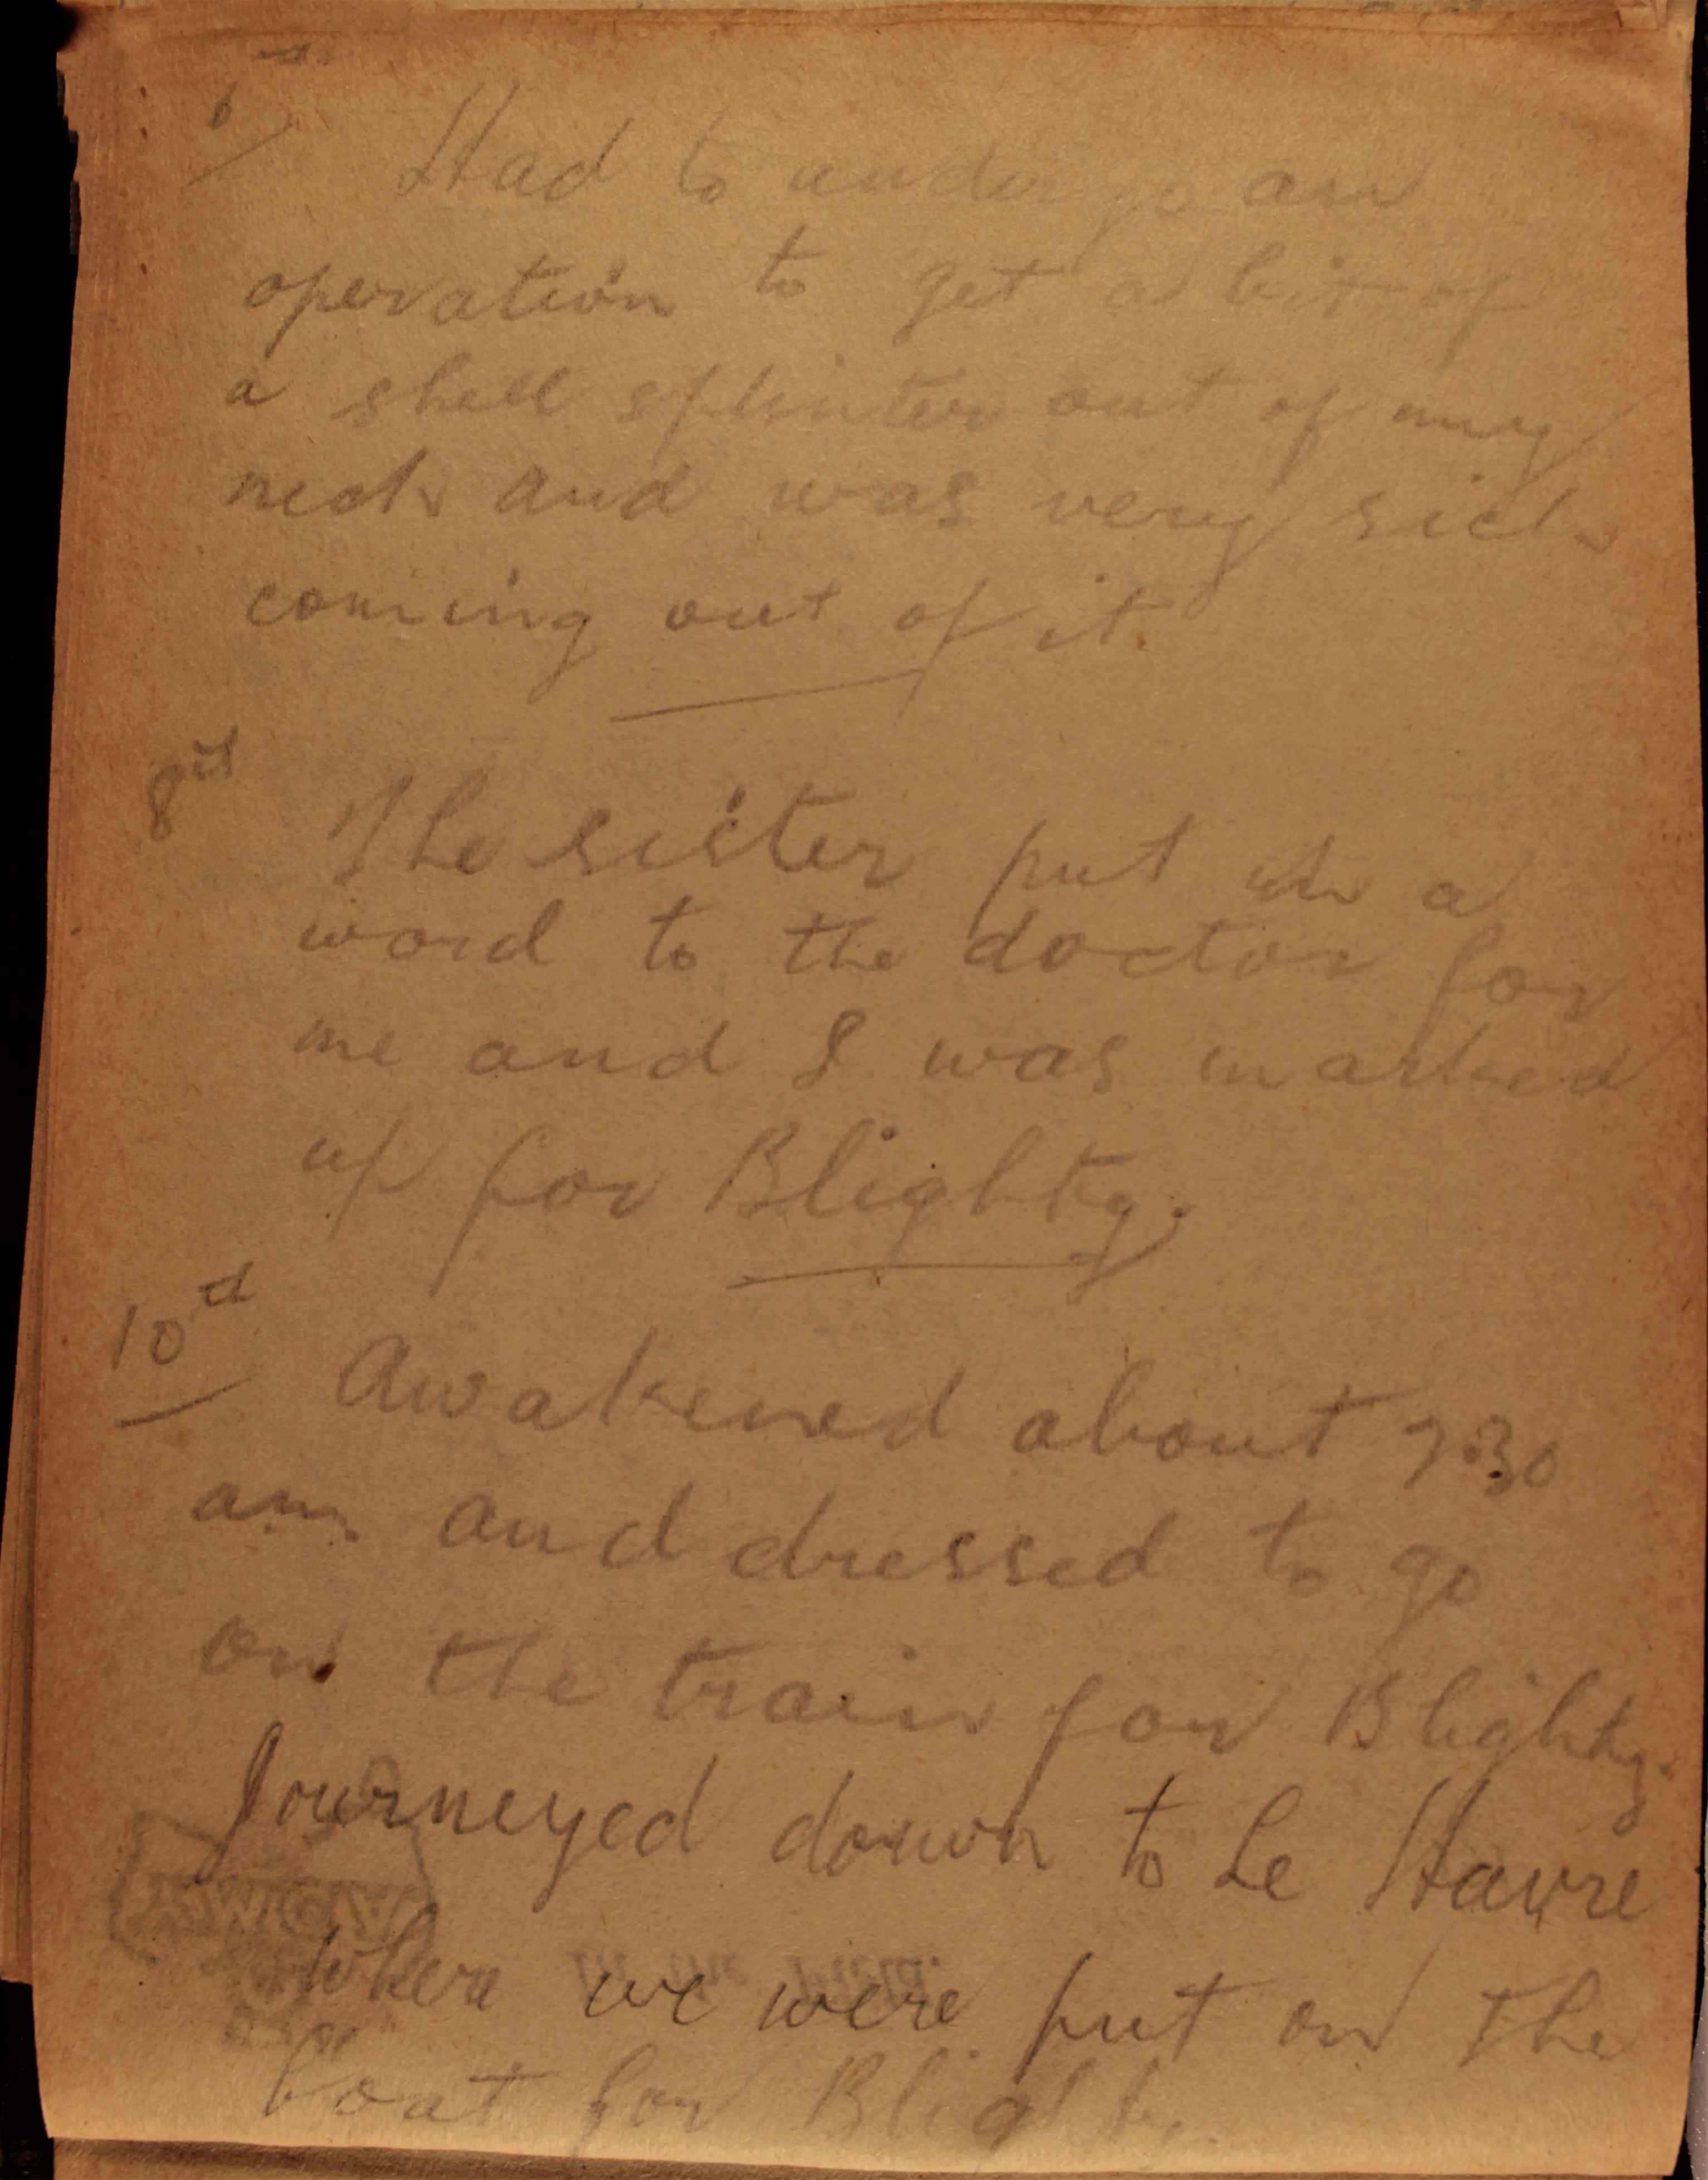 6th
Had to undergo an
operation to get a bit of
a shell splinter out of my
neck and was very sick
coming out of it.
8th
The sister put in a
word to the doctor for
me and I was marked
up for Blighty.
10th
Awakened about 7.30
am and dressed to go
on the train for Blighty.
Journeyed down to Le Havre
where we were put on the
boat for Blighty.